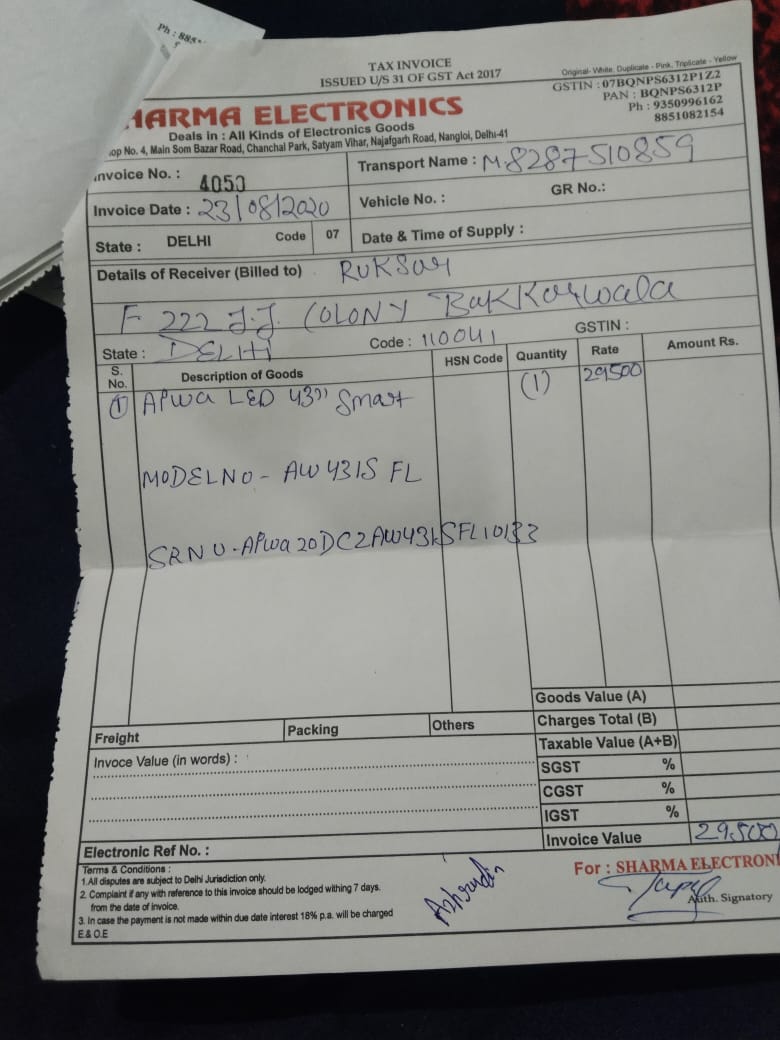 Ph : 885
TAX INVOICE
ISSUED U/S 31 OF GST Act 2017
Original- White, Duplicate - Pink, Triplicate - Yellow
GSTIN : 07BQNPS6312P1Z2
PAN : BQNPS6312P
Ph : 9350996162
8851082154
HARMA ELECTRONICS
Deals in : All Kinds of Electronics Goods
op No. 4, Main Som Bazar Road, Chanchal Park, Satyam Vihar, Najafgarh Road, Nangloi, Delhi-41
nvoice No. : 4050
Transport Name : M.8287510859
Invoice Date : 23/08/2020
Vehicle No. : GR No.:
State : DELHI Code 07
Date & Time of Supply :
Details of Receiver (Billed to) RUKSar
F 222 J.J. COLONY Bakkarwala
State : DELHI Code : 110041 GSTIN :
S. No. Description of Goods HSN Code Quantity Rate Amount Rs.
① APwa LED 43" Smart (1) 29500
MODELNO - AW431S FL
SRNO-APwa20DC2AW431SFL10133
Goods Value (A)
Freight Packing Others Charges Total (B)
Invoce Value (in words) : Taxable Value (A+B)
SGST %
CGST %
IGST %
Electronic Ref No. : Invoice Value 29,500
Terms & Conditions :
1.All disputes are subject to Delhi Jurisdiction only.
2. Complaint if any with reference to this invoice should be lodged withing 7 days.
from the date of invoice.
3. In case the payment is not made within due date interest 18% p.a. will be charged
E & O.E
For : SHARMA ELECTRONI
Auth. Signatory